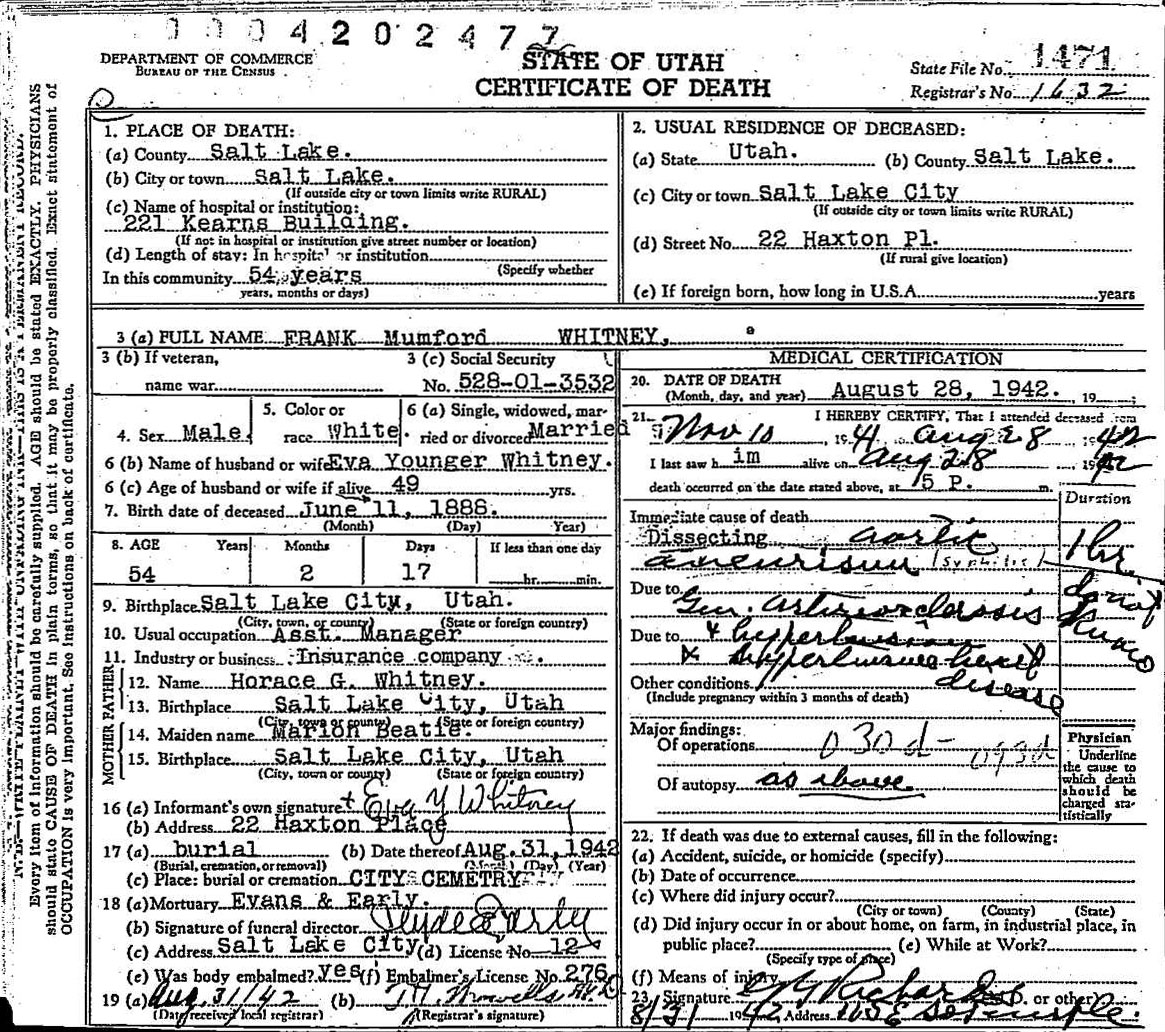 0004202477
DEPARTMENT OF COMMERCE
BUREAU OF THE CENSUS
STATE OF UTAH
CERTIFICATE OF DEATH
State File No. 1471
Registrar's No. 1632
Every item of information should be carefully supplied. AGE should be stated EXACTLY. PHYSICIANS
should state CAUSE OF DEATH in plain terms, so that it may be properly classified. Exact statement of
OCCUPATION is very important. See instructions on back of certificate.
1. PLACE OF DEATH:
(a) County Salt Lake.
(b) City or town Salt Lake.
(If outside city or town limits write RURAL)
(c) Name of hospital or institution:
221 Kearns Building.
(If not in hospital or institution give street number or location)
(d) Length of stay: In hospital or institution
(Specify whether
In this community 54 years
years, months or days)
2. USUAL RESIDENCE OF DECEASED:
(a) State Utah. (b) County Salt Lake.
(c) City or town Salt Lake City
(If outside city or town limits write RURAL)
(d) Street No. 22 Haxton Pl.
(If rural give location)
(e) If foreign born, how long in U.S.A. years
3 (a) FULL NAME FRANK Mumford WHITNEY,
3 (b) If veteran,
name war
3 (c) Social Security
No. 528-01-3532
4. Sex Male
5. Color or
race White.
6 (a) Single, widowed, mar-
ried or divorced Married
6 (b) Name of husband or wife Eva Younger Whitney.
6 (c) Age of husband or wife if alive 49 yrs.
7. Birth date of deceased June 11, 1888.
(Month) (Day) Year)
8. AGE Years Months Days If less than one day
54 2 17 hr. min.
9. Birthplace Salt Lake City, Utah.
(City, town, or county) (State or foreign country)
10. Usual occupation Asst. Manager
11. Industry or business Insurance company.
FATHER
12. Name Horace G. Whitney.
13. Birthplace Salt Lake City, Utah
(City, town or county) (State or foreign country)
MOTHER
14. Maiden name Marion Beatie.
15. Birthplace Salt Lake City, Utah
(City, town or county) (State or foreign country)
16 (a) Informant's own signature Eva Y Whitney
(b) Address 22 Haxton Place
17 (a) burial (b) Date thereof Aug. 31, 1942
(Burial, cremation, or removal) (Month) (Day) (Year)
(c) Place: burial or cremation CITY CEMETRY
18 (a) Mortuary Evans & Early.
(b) Signature of funeral director Clyde Early
(c) Address Salt Lake City (d) License No. 12
(e) Was body embalmed? yes (f) Embalmer's License No. 276
19 (a) Aug. 31/42 (b)
(Date received local registrar) (Registrar's signature)
MEDICAL CERTIFICATION
20. DATE OF DEATH
(Month, day, and year) August 28, 1942. 19
21. I HEREBY CERTIFY, That I attended deceased from
Nov 10, 1941 to Aug 28 1942
I last saw him alive on Aug 28 1942
death occurred on the date stated above, at 5 P. m.
Duration
Immediate cause of death
Dissecting aortic 1 hr.
aneurism (Syphilitic)
Due to
Gen. arteriosclerosis
Due to & hypertension
& hypertensive heart
disease
Other conditions
(Include pregnancy within 3 months of death)
Major findings:
Of operations 030d- 093d
Of autopsy as above
Physician
Underline
the cause to
which death
should be
charged sta-
tistically
22. If death was due to external causes, fill in the following:
(a) Accident, suicide, or homicide (specify)
(b) Date of occurrence
(c) Where did injury occur?
(City or town) (County) (State)
(d) Did injury occur in or about home, on farm, in industrial place, in
public place? (e) While at Work?
(Specify type of place)
(f) Means of injury
23. Signature G G Richards M.D. or other)
8/31 1942 Address